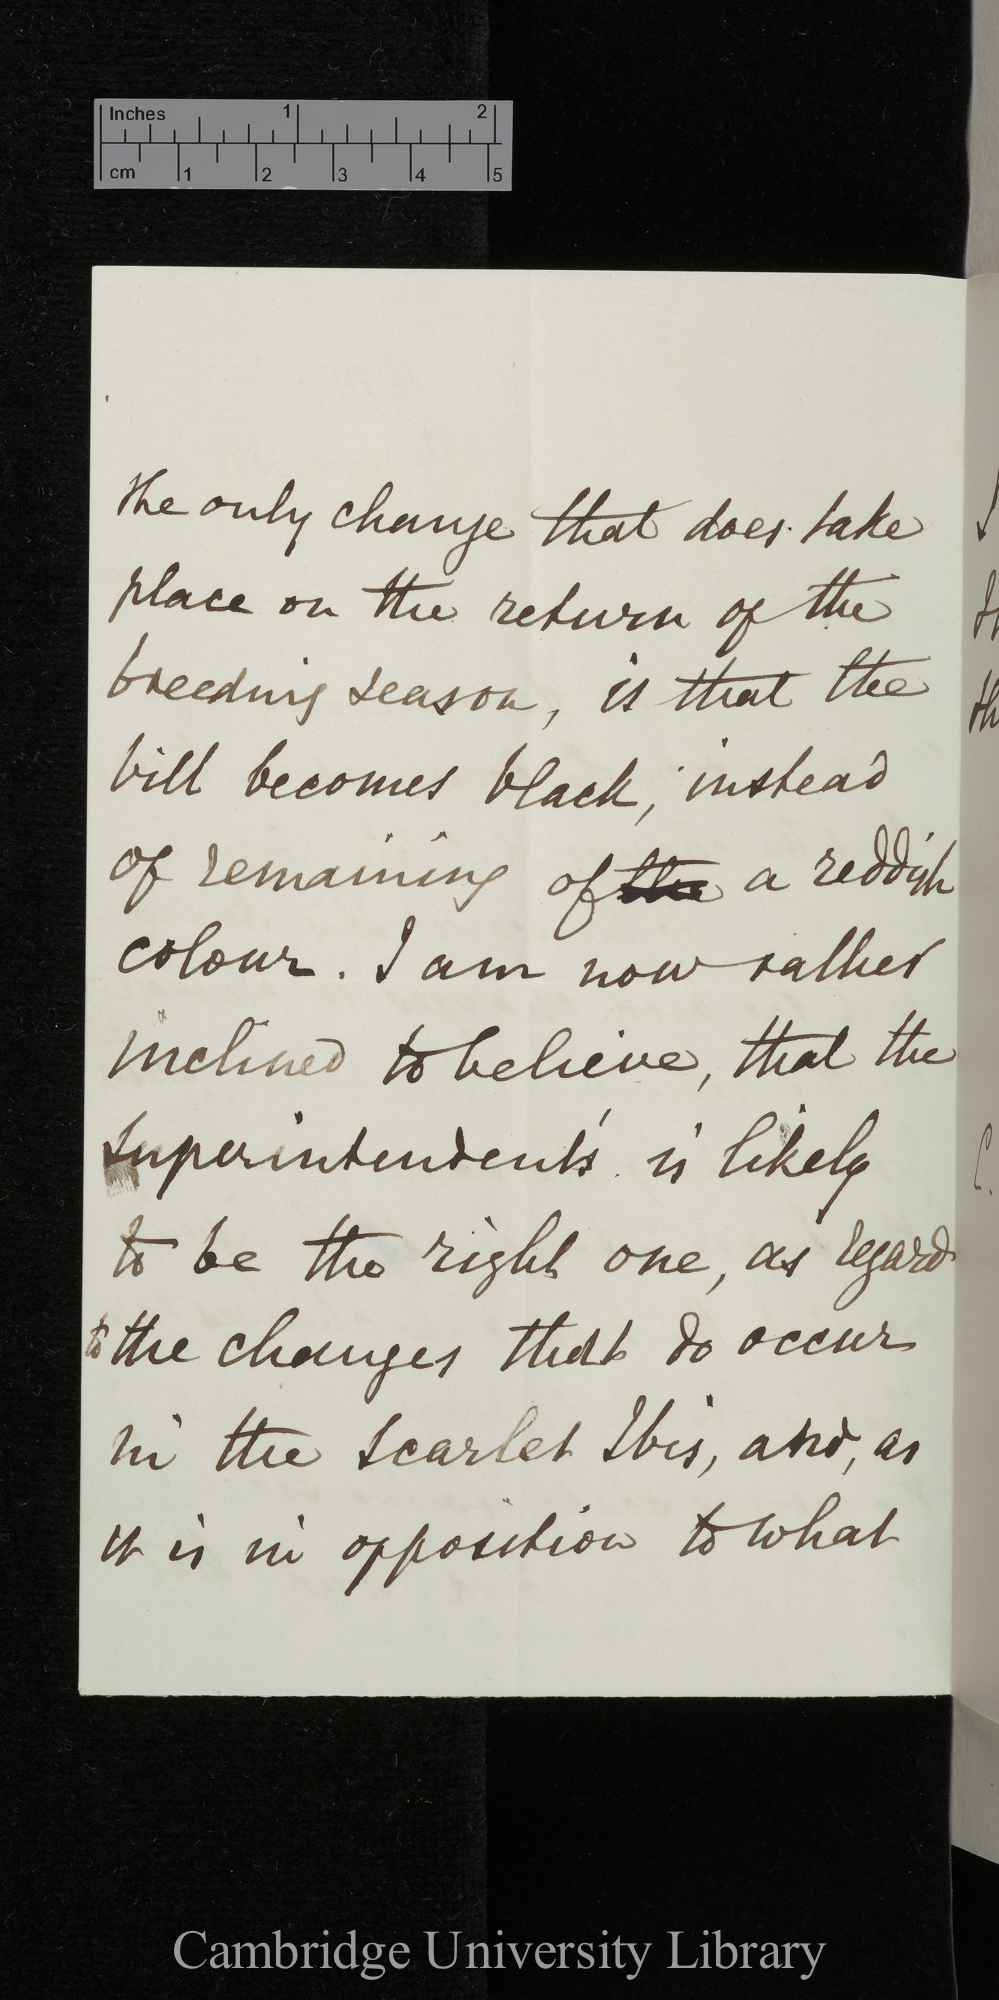 Inches 1 2
cm 1 2 3 4 5
the only change that does take
place on the return of the
breeding season, is that the
bill becomes black, instead
of remaining of the a reddish
colour. I am now rather
inclined to believe, that the
superintendent's is likely
to be the right one, as regard
to the changes that do occur
in the Scarlet Ibis, and, as
it is in opposition to what
Cambridge University Library